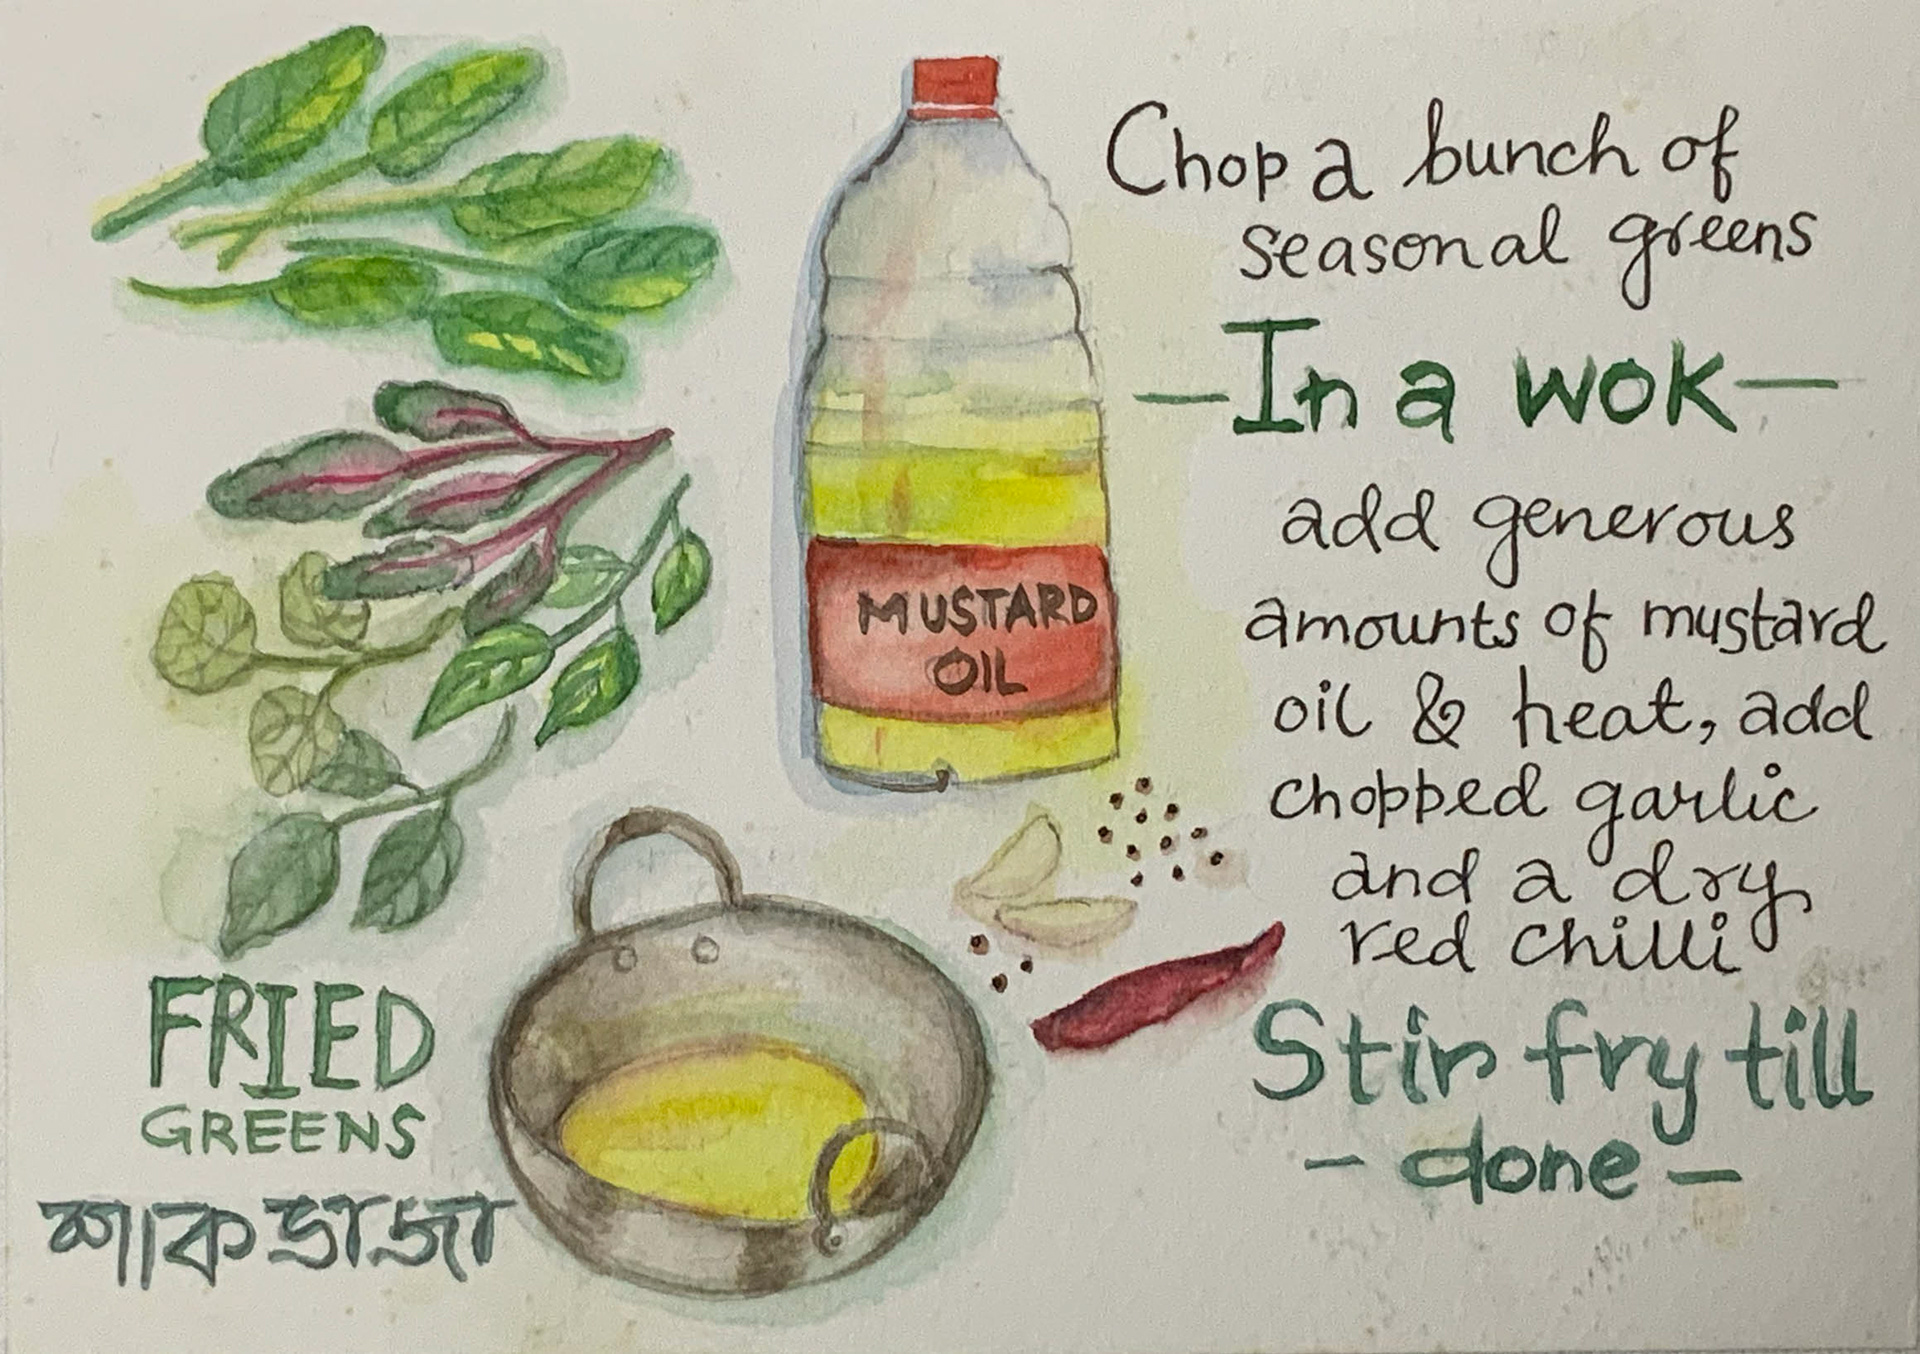 Chop a bunch of
seasonal greens
—In a wok—
add generous
amounts of mustard
oil & heat, add
chopped garlic
and a dry
red chilli
Stir fry till
- done -
MUSTARD
OIL
FRIED
GREENS
শাক ভাজা